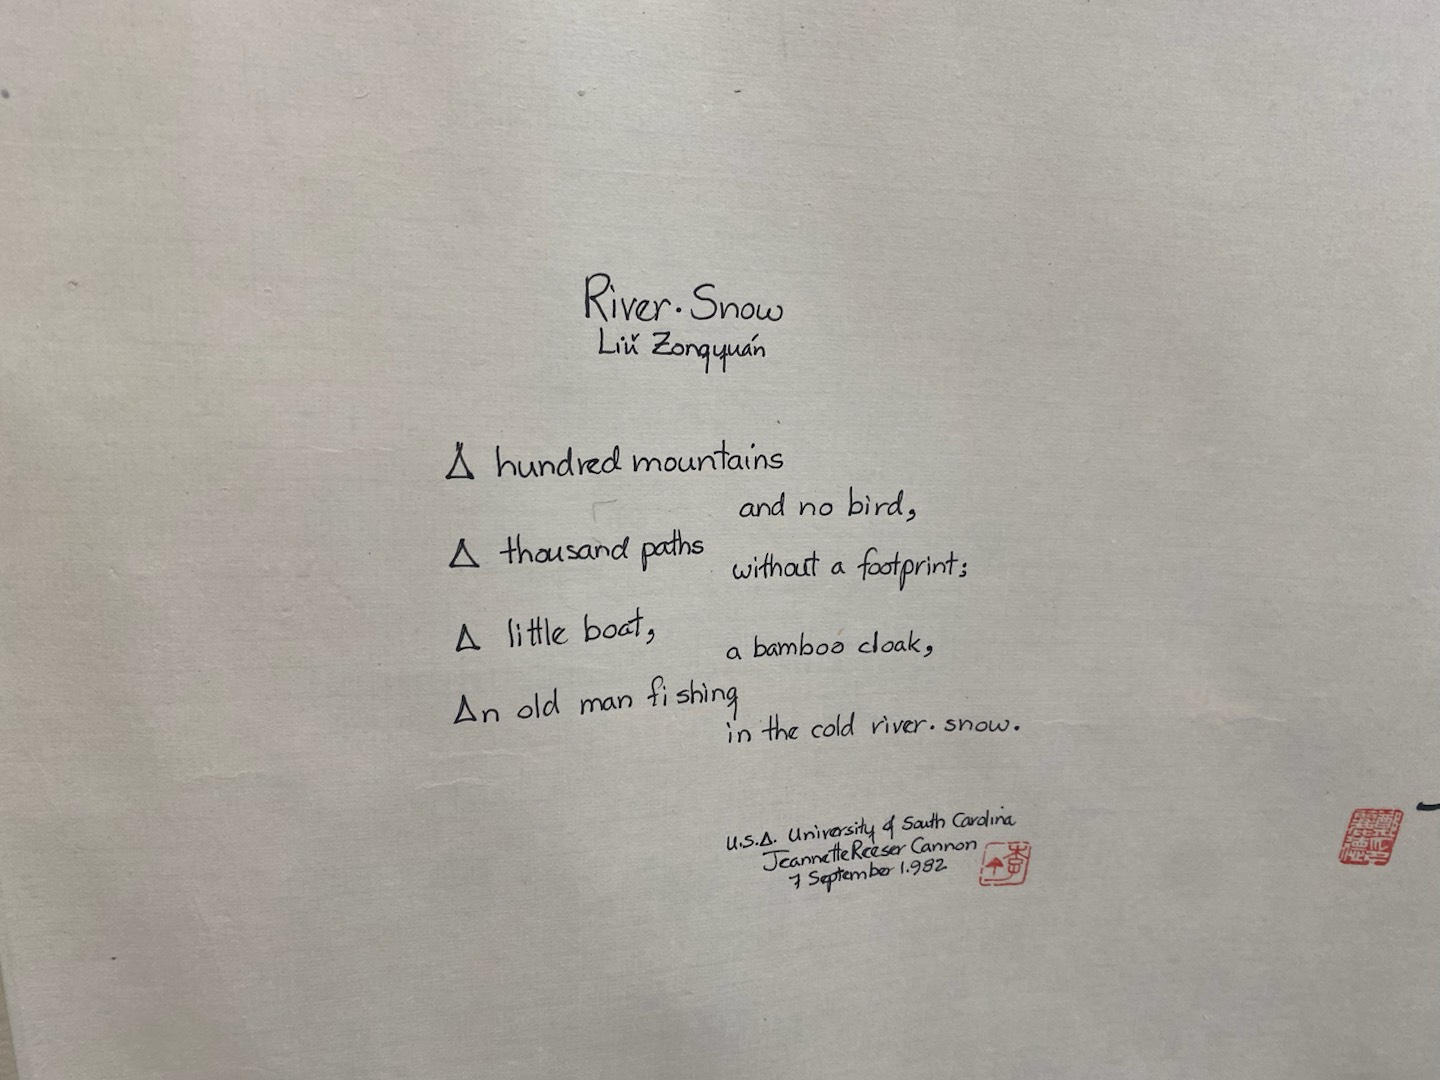 River. Snow
Liǔ Zongyuán
A hundred mountains
and no bird,
A thousand paths
without a footprint;
A little boat,
a bamboo cloak,
An old man fishing
in the cold river. snow.
U.S.A. University of South Carolina
Jeannette Reeser Cannon
7 September 1.982